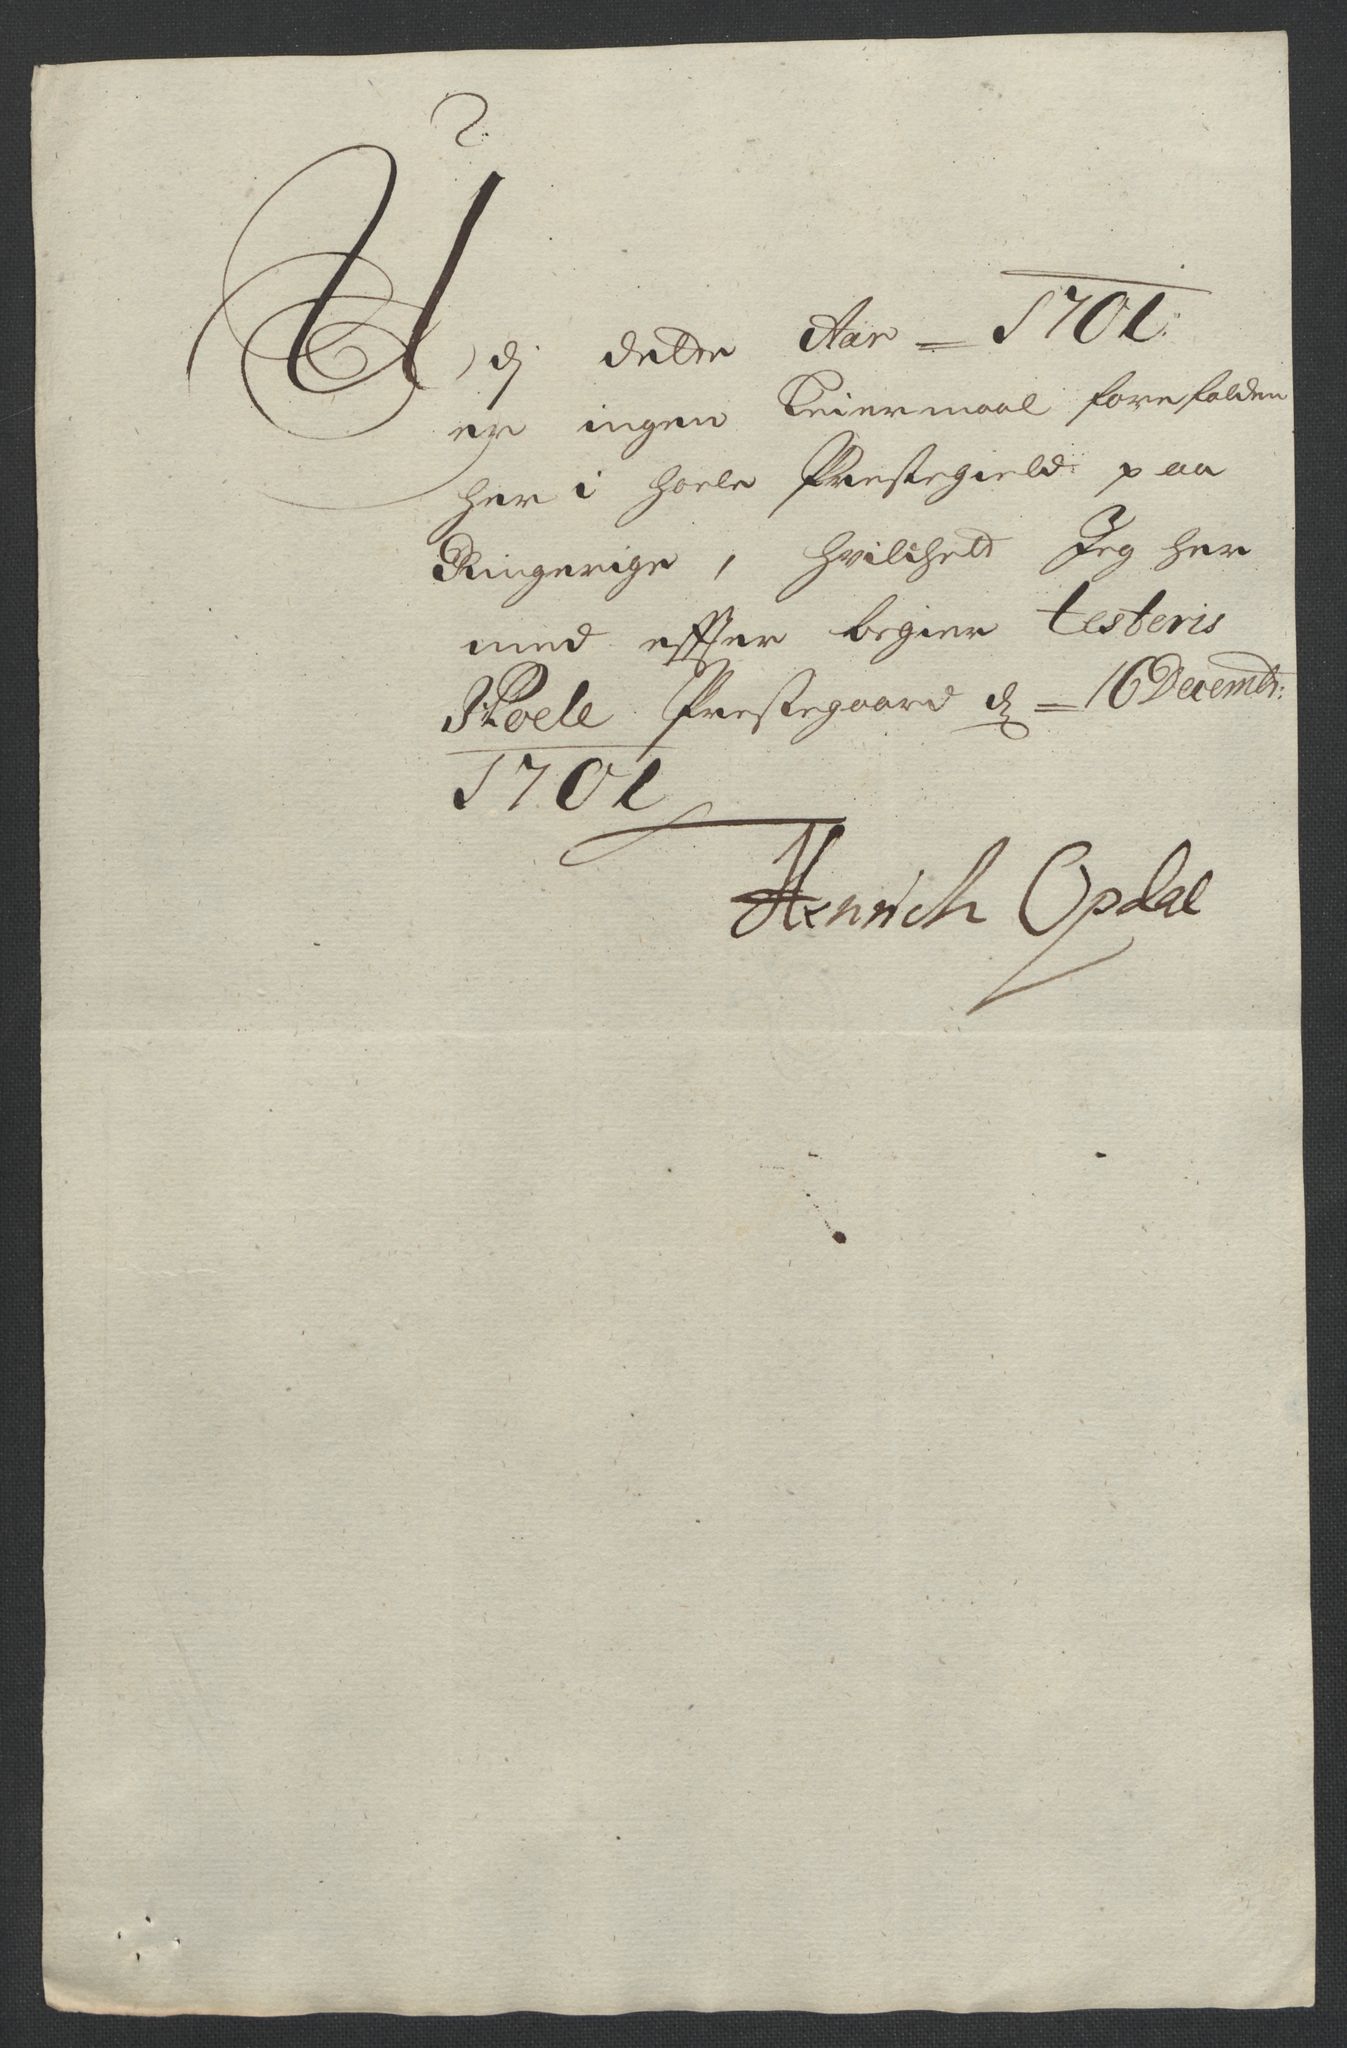 Udj dette Aar = 1701:
er ingen Leiermaal forefalden
her i Hoele Prestegield paa
Ringerige, hvilchelt Jeg her
med effter begier testeris
Hoele Prestegaard dͤ = 16 Decembr:
1701
Henrich Opdal